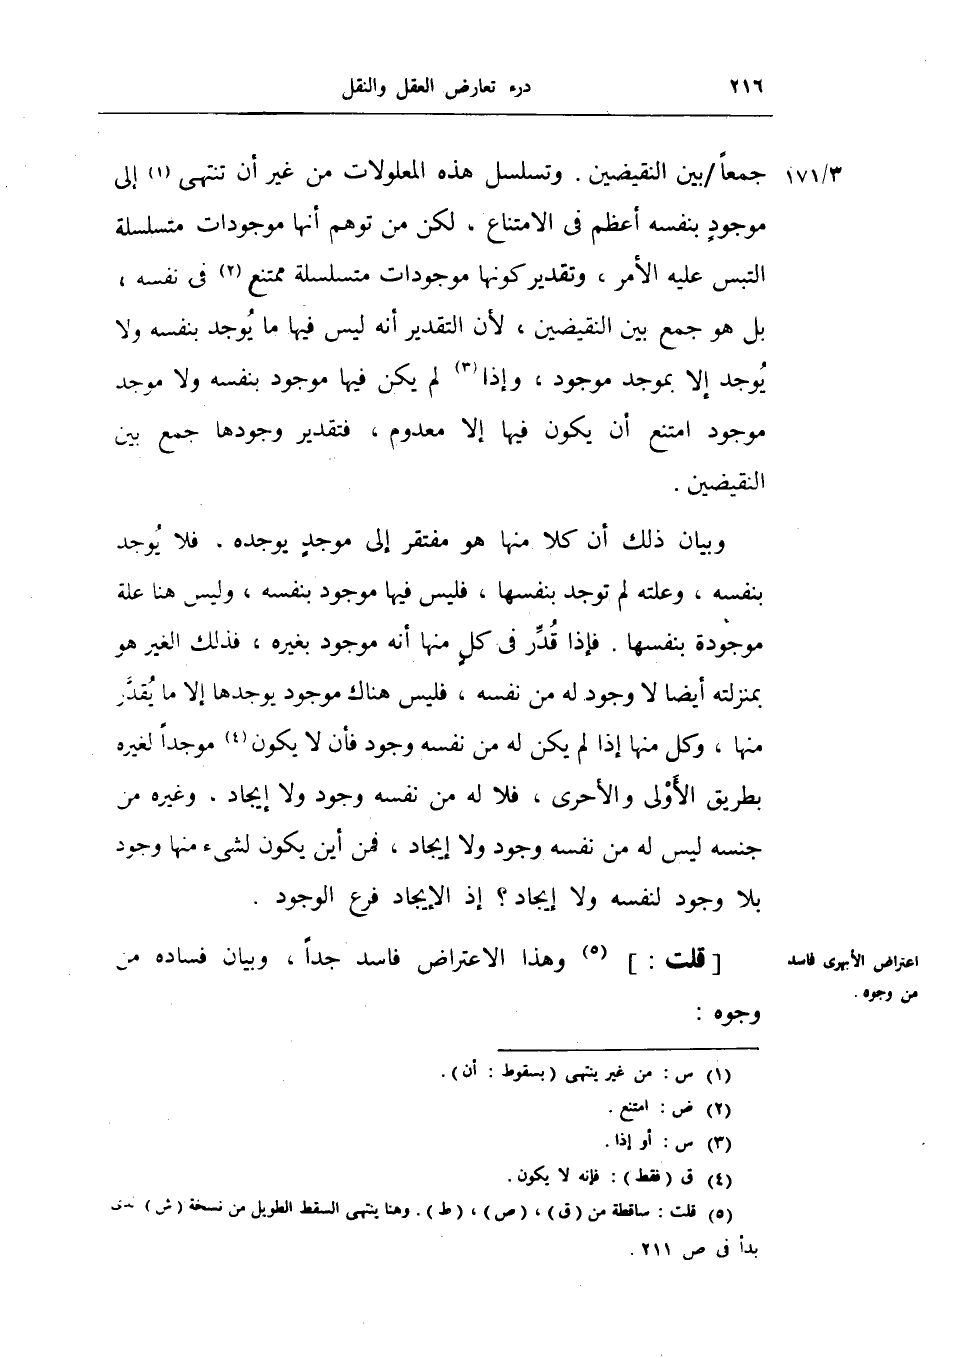 ٢١٦ درء تعارض العقل والنقل
١٧١/٣ جمعاً / بين النقيضين . وتسلسل هذه المعلولات من غير أن تنتهى (١) إلى
موجودٍ بنفسه أعظم فى الامتناع . لكن من توهم أنها موجودات متسلسلة
التبس عليه الأمر ، وتقدير كونها موجودات متسلسلة ممتنع (٢) فى نفسه ،
بل هو جمع بين النقيضين ، لأن التقدير أنه ليس فيها ما يُوجد بنفسه ولا
يُوجد إلا بموجد موجود ، وإذا (٣) لم يكن فيها موجود بنفسه ولا موجد
موجود امتنع أن يكون فيها إلا معدوم ، فتقدير وجودها جمع بين
النقيضين .
وبيان ذلك أن كلا منها هو مفتقر إلى موجدٍ يوجده . فلا يُوجد
بنفسه ، وعلته لم توجد بنفسها ، فليس فيها موجود بنفسه ، وليس هنا علة
موجودة بنفسها . فإذا قُدِّر فى كلٍ منها أنه موجود بغيره ، فذلك الغير هو
بمنزلته أيضا لا وجود له من نفسه ، فليس هناك موجود يوجدها إلا ما يُقدَّر
منها ، وكل منها إذا لم يكن له من نفسه وجود فأن لا يكون (٤) موجداً لغيره
بطريق الأَوْلى والأحرى ، فلا له من نفسه وجود ولا إيجاد . وغيره من
جنسه ليس له من نفسه وجود ولا إيجاد ، فمن أين يكون لشىء منها وجود
بلا وجود لنفسه ولا إيجاد ؟ إذ الإيجاد فرع الوجود .
[ قلت : ] (٥) وهذا الاعتراض فاسد جداً ، وبيان فساده من
اعتراض الأبهرى فاسد
من وجوه .
وجوه :
(١) س : من غير ينتهى ( بسقوط : أن ) .
(٢) ض : امتنع .
(٣) س : أو إذا .
(٤) ق ( فقط ) : فإنه لا يكون .
(٥) قلت : ساقطة من ( ق ) ، ( ص ) ، ( ط ) . وهنا ينتهى السقط الطويل من نسخة ( ش )
بدأ فى ص ٢١١ .